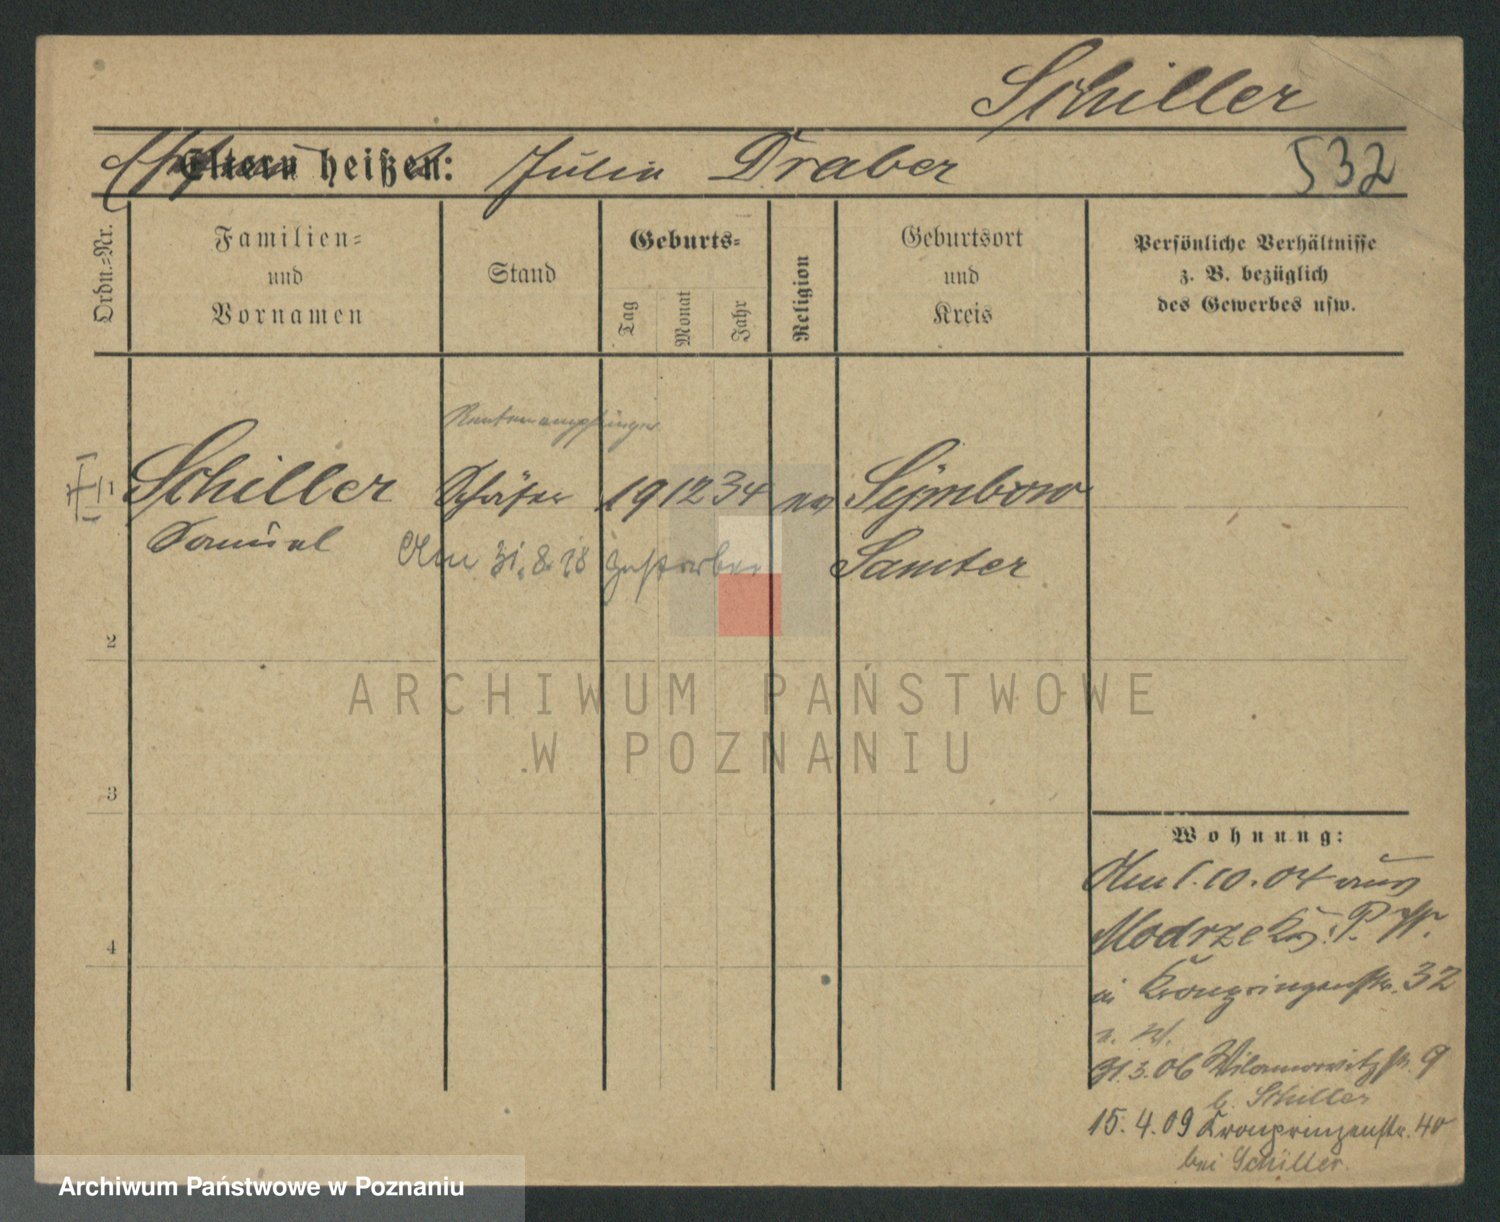 Schiller
Eltern heißen: Julia Draber
532
Ordn.-Nr.
Familien-
und
Vornamen
Stand
Geburts-
Tag
Monat
Jahr
Religion
Geburtsort
und
Kreis
Persönliche Verhältnisse
z. B. bezüglich
des Gewerbes usw.
Rentenempfänger
1 Schiller Schäfer 19 12 34 ev Sijmbow
Samuel Am 31.8.18 gestorben Samter
2
ARCHIWUM PAŃSTWOWE
W POZNANIU
3
Wohnung:
Am 1.10.04 aus
Modrze
in Kronprinzenstr. 32
4
31.3.06 Wilamowitzstr. 9
b. Schiller
15.4.09 Kronprinzenstr. 40
bei Schiller.
Archiwum Państwowe w Poznaniu